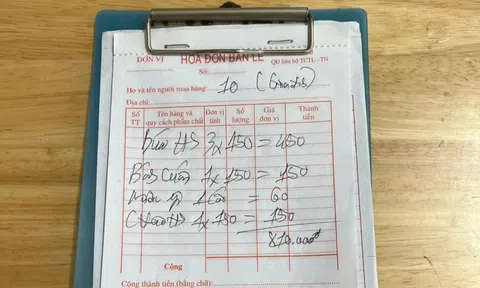 ĐƠN VỊ
HÓA ĐƠN BÁN LẺ
QĐ liên bộ TCTL - TN
Số:
Họ và tên người mua hàng: 10
Địa chỉ:
Số TT Tên hàng và quy cách phẩm chất Đơn vị tính Số lượng Giá đơn vị Thành tiền
Bún HS 3 x 150 = 450
Bún 1 x 150 = 150
= 60
Cháo HS 1 x 150 = 150
810.000đ
Cộng
Cộng thành tiền (bằng chữ):